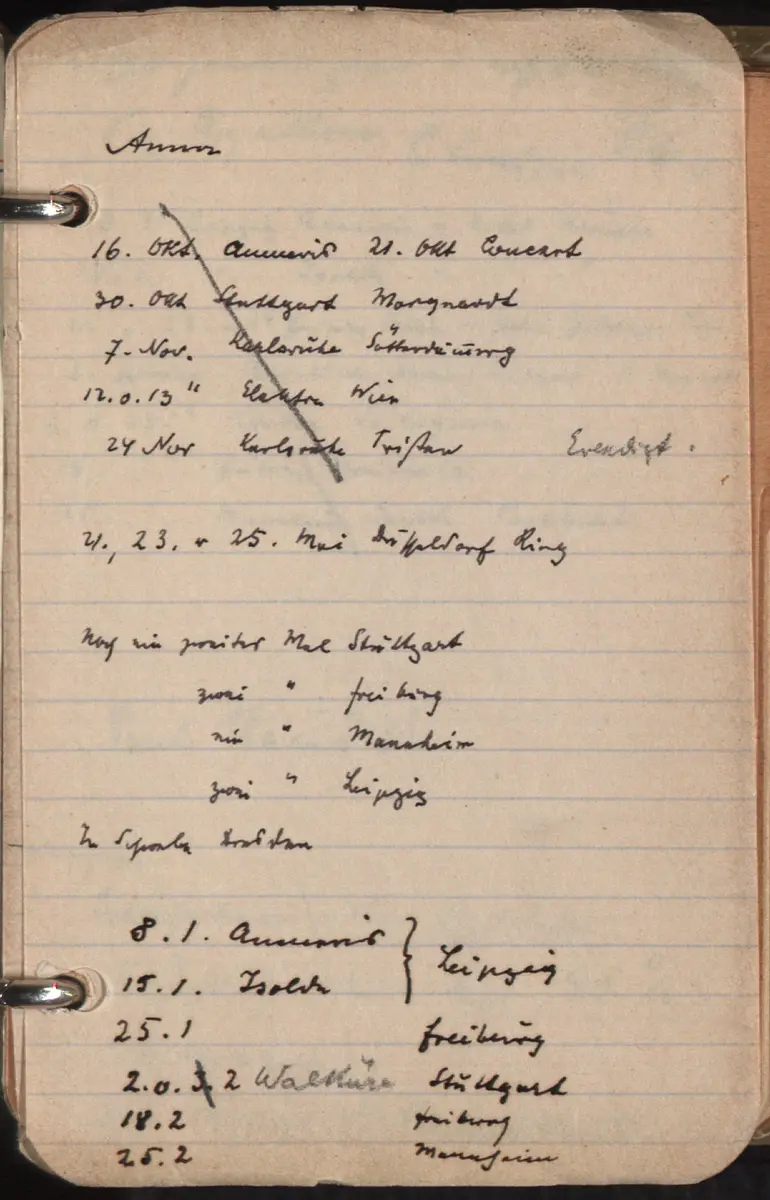 Anna
16. Okt. Amneris 21. Okt Concert
30. Okt Stuttgart
7. Nov. Karlsruhe Götterdämmrg
12. o. 13 " Elektra Wien
24 Nov Karlsruhe Tristan Erledigt.
21., 23. u 25. Mai Düsseldorf Ring
Noch ein zweites Mal Stuttgart
zwei " Freiburg
ein " Mannheim
zwei " Leipzig
In Dresden
8.1. Amneris } Leipzig
15.1. Isolde
25.1 Freiburg
2. o. 3. 2 Walküre Stuttgart
18.2 Freiburg
25.2 Mannheim